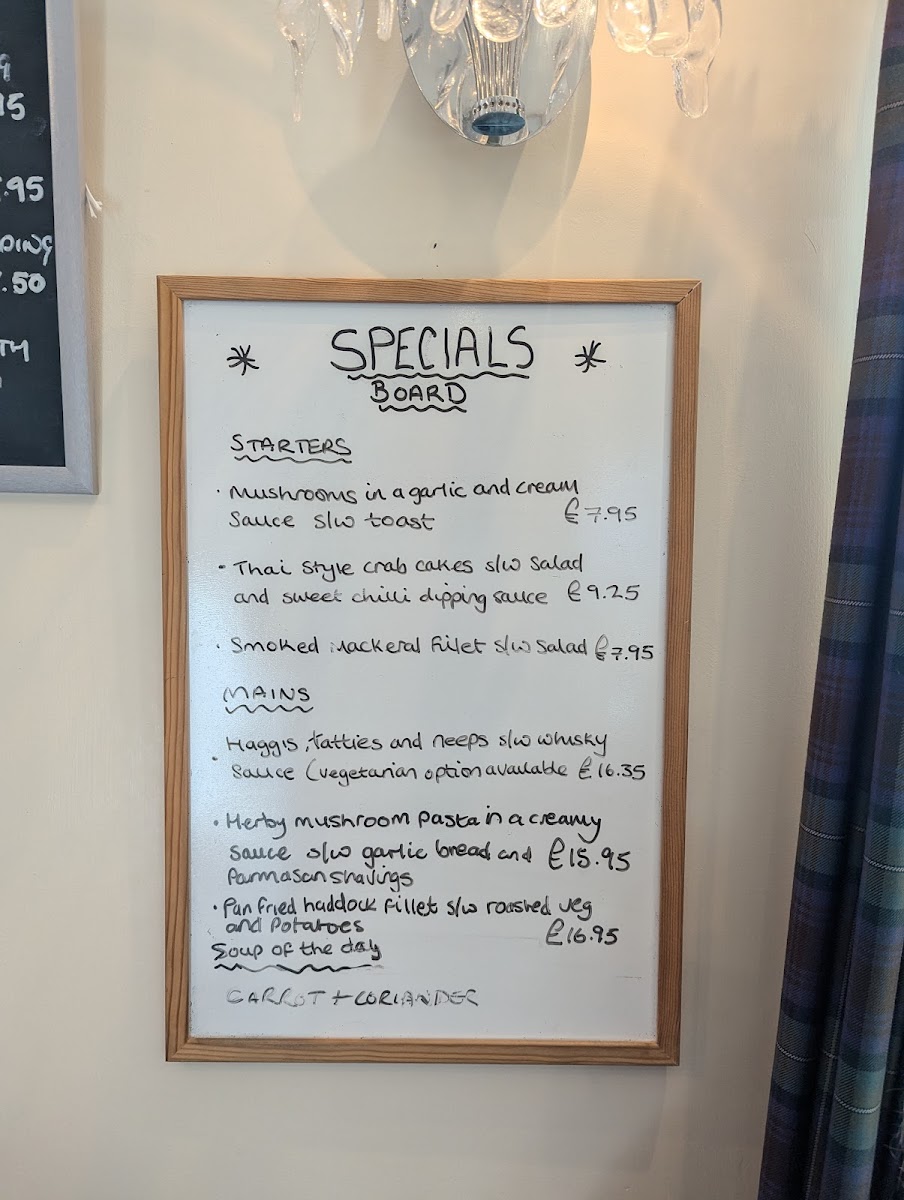 15
.95
DING
.50
TH
* SPECIALS *
BOARD
STARTERS
· Mushrooms in a garlic and cream
Sauce s/w toast £7.95
· Thai Style crab cakes s/w Salad
and sweet chilli dipping sauce £9.25
· Smoked Mackeral fillet s/w Salad £7.95
MAINS
· Haggis, tatties and neeps s/w whisky
Sauce (vegetarian option available £16.35
· Herby mushroom pasta in a creamy
Sauce s/w garlic bread and £15.95
Parmasan shavings
· Pan fried haddock fillet s/w roasted veg
and Potatoes £16.95
Soup of the day
CARROT + CORIANDER